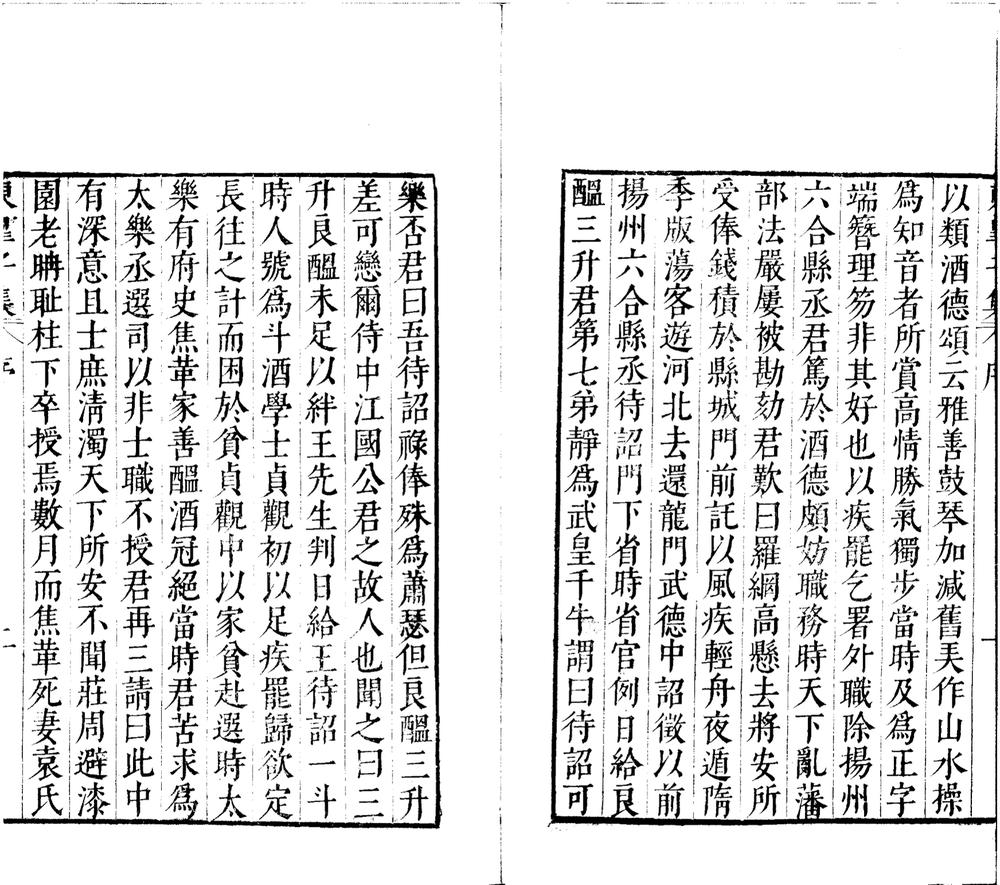 以類酒德頌云雅善鼓琴加減舊弄作山水操
爲知音者所賞高情勝氣獨步當時及爲正字
端簪理笏非其好也以疾罷乞署外職除揚州
六合縣丞君篤於酒德頗妨職務時天下亂藩
部法嚴屢被勘劾君歎曰羅網高懸去將安所
受俸錢積於縣城門前託以風疾輕舟夜遁隋
季版蕩客遊河北去還龍門武德中詔徵以前
揚州六合縣丞待詔門下省時省官例日給良
醞三升君第七弟靜爲武皇千牛謂曰待詔可
樂否君曰吾待詔祿俸殊爲蕭瑟但良醞三升
差可戀爾侍中江國公君之故人也聞之曰三
升良醞未足以絆王先生判日給王待詔一斗
時人號爲斗酒學士貞觀初以足疾罷歸欲定
長往之計而困於貧貞觀中以家貧赴選時太
樂有府史焦革家善醞酒冠絕當時君苦求爲
太樂丞選司以非士職不授君再三請曰此中
有深意且士庶淸濁天下所安不聞莊周避漆
園老聃耻柱下卒授焉數月而焦革死妻袁氏